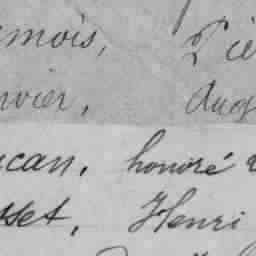 emois, Piè
nvier, Aug
ucan, honoré
sset, Henri